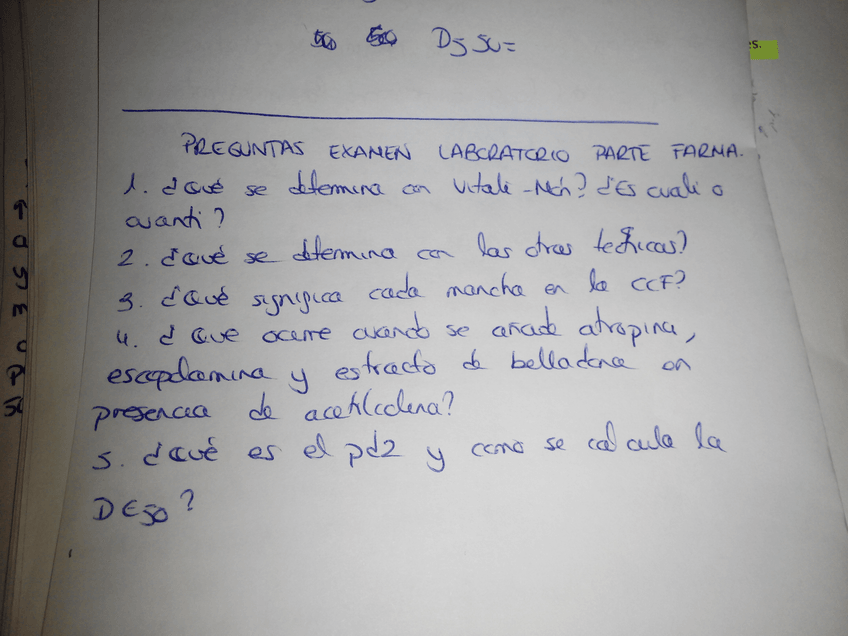 D5 50=
es.
PREGUNTAS EXAMEN LABORATORIO PARTE FARMA.
1. ¿Qué se determina con Vitali-Morin? ¿Es cuali o
cuanti?
2. ¿Qué se determina con las otras técnicas?
3. ¿Qué significa cada mancha en la CCF?
4. ¿Que ocurre cuando se añade atropina,
escopolamina y estracto de belladona en
presencia de acetilcolina?
5. ¿Qué es el pd2 y como se calcula la
DE50?